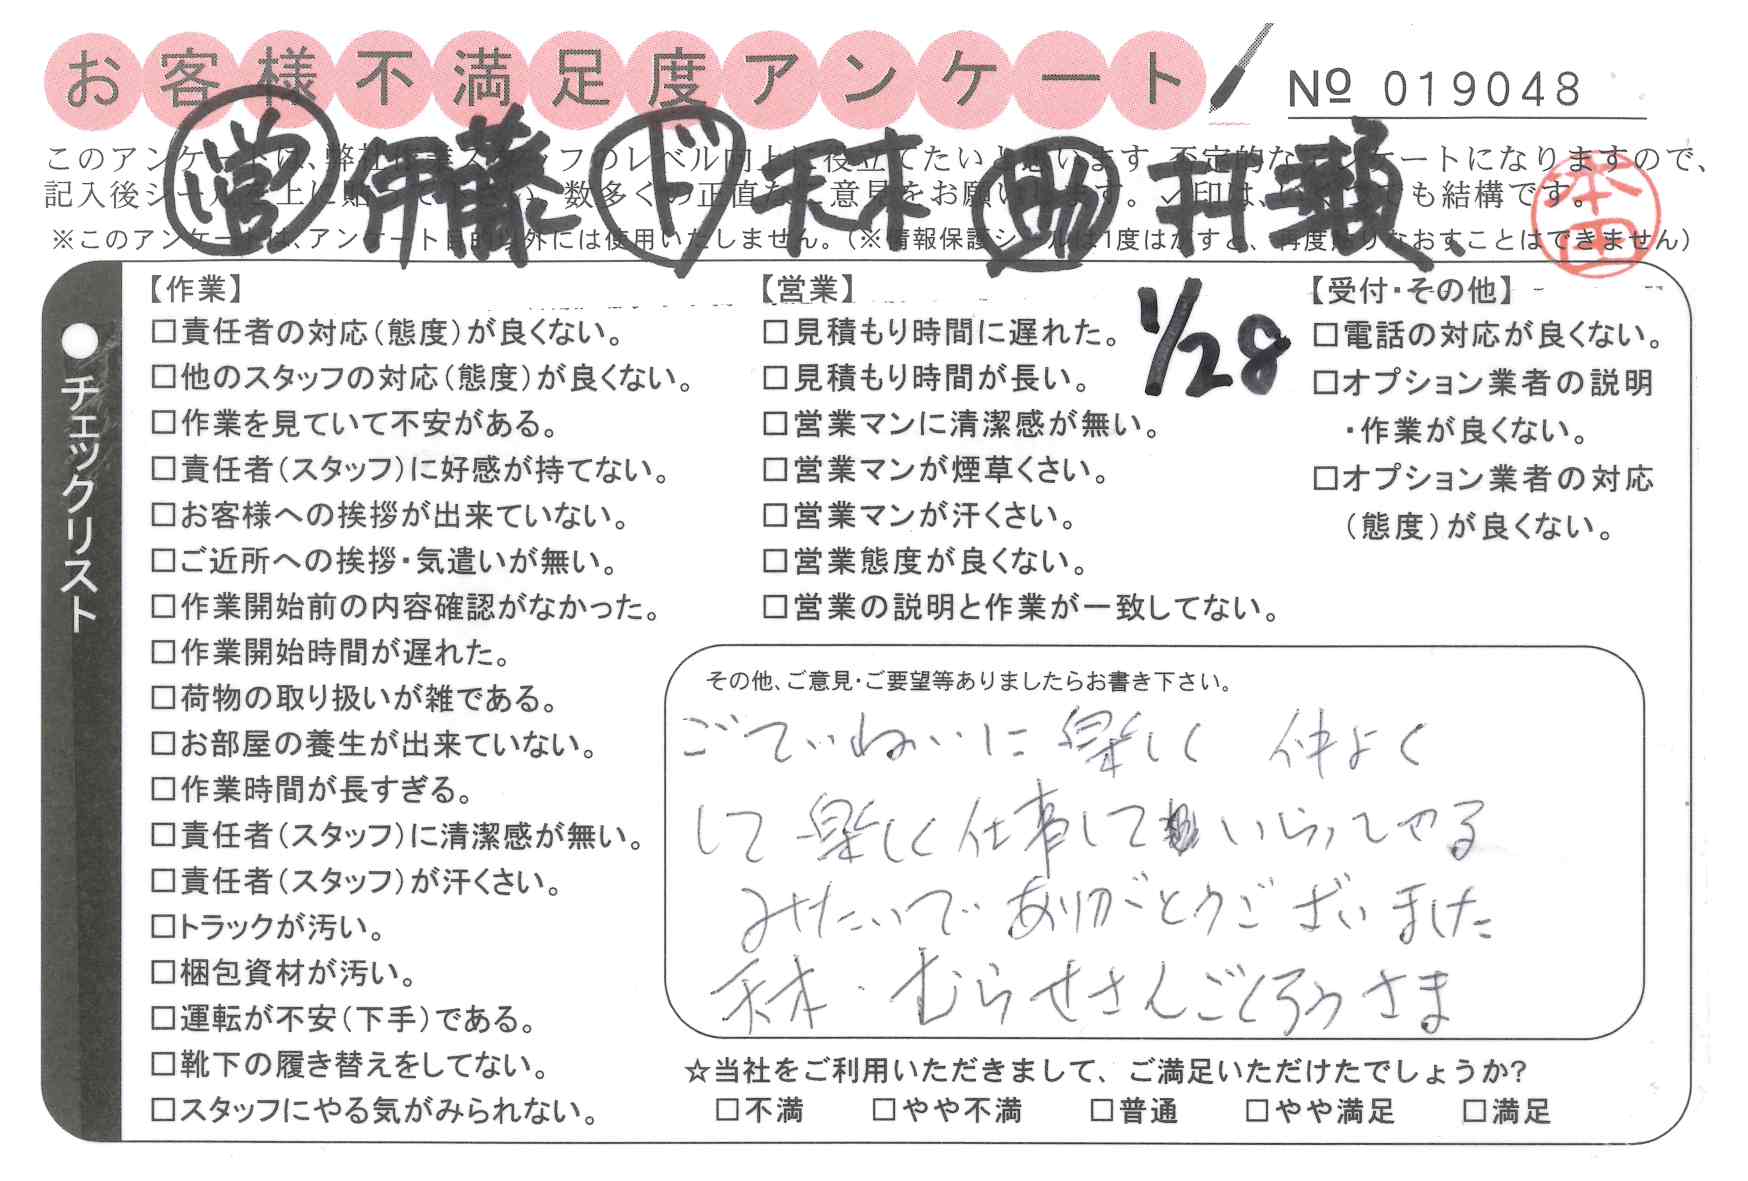 お客様不満足度アンケート
№ 019048
営 伊藤 ド 天木 助 村瀬
本田
このアンケートは、弊社作業スタッフのレベル向上に役立てたいと思います。不定的なアンケートになりますので、
記入後シールを上に貼って下さい。数多くの正直なご意見をお願いします。✓印は、いくつでも結構です。
※このアンケートは、アンケート目的以外には使用いたしません。(※情報保護シールは1度はがすと、再度貼りなおすことはできません)
チェックリスト
【作業】
□責任者の対応(態度)が良くない。
□他のスタッフの対応(態度)が良くない。
□作業を見ていて不安がある。
□責任者(スタッフ)に好感が持てない。
□お客様への挨拶が出来ていない。
□ご近所への挨拶・気遣いが無い。
□作業開始前の内容確認がなかった。
□作業開始時間が遅れた。
□荷物の取り扱いが雑である。
□お部屋の養生が出来ていない。
□作業時間が長すぎる。
□責任者(スタッフ)に清潔感が無い。
□責任者(スタッフ)が汗くさい。
□トラックが汚い。
□梱包資材が汚い。
□運転が不安(下手)である。
□靴下の履き替えをしてない。
□スタッフにやる気がみられない。
【営業】
□見積もり時間に遅れた。
□見積もり時間が長い。
□営業マンに清潔感が無い。
□営業マンが煙草くさい。
□営業マンが汗くさい。
□営業態度が良くない。
□営業の説明と作業が一致してない。
1/28
【受付・その他】
□電話の対応が良くない。
□オプション業者の説明
・作業が良くない。
□オプション業者の対応
(態度)が良くない。
その他、ご意見・ご要望等ありましたらお書き下さい。
ごていねいに楽しく 仲よく
して楽しく仕事していらっしゃる
みたいで ありがとうございました
天木・むらせさんごくろうさま
☆当社をご利用いただきまして、ご満足いただけたでしょうか?
□不満 □やや不満 □普通 □やや満足 □満足